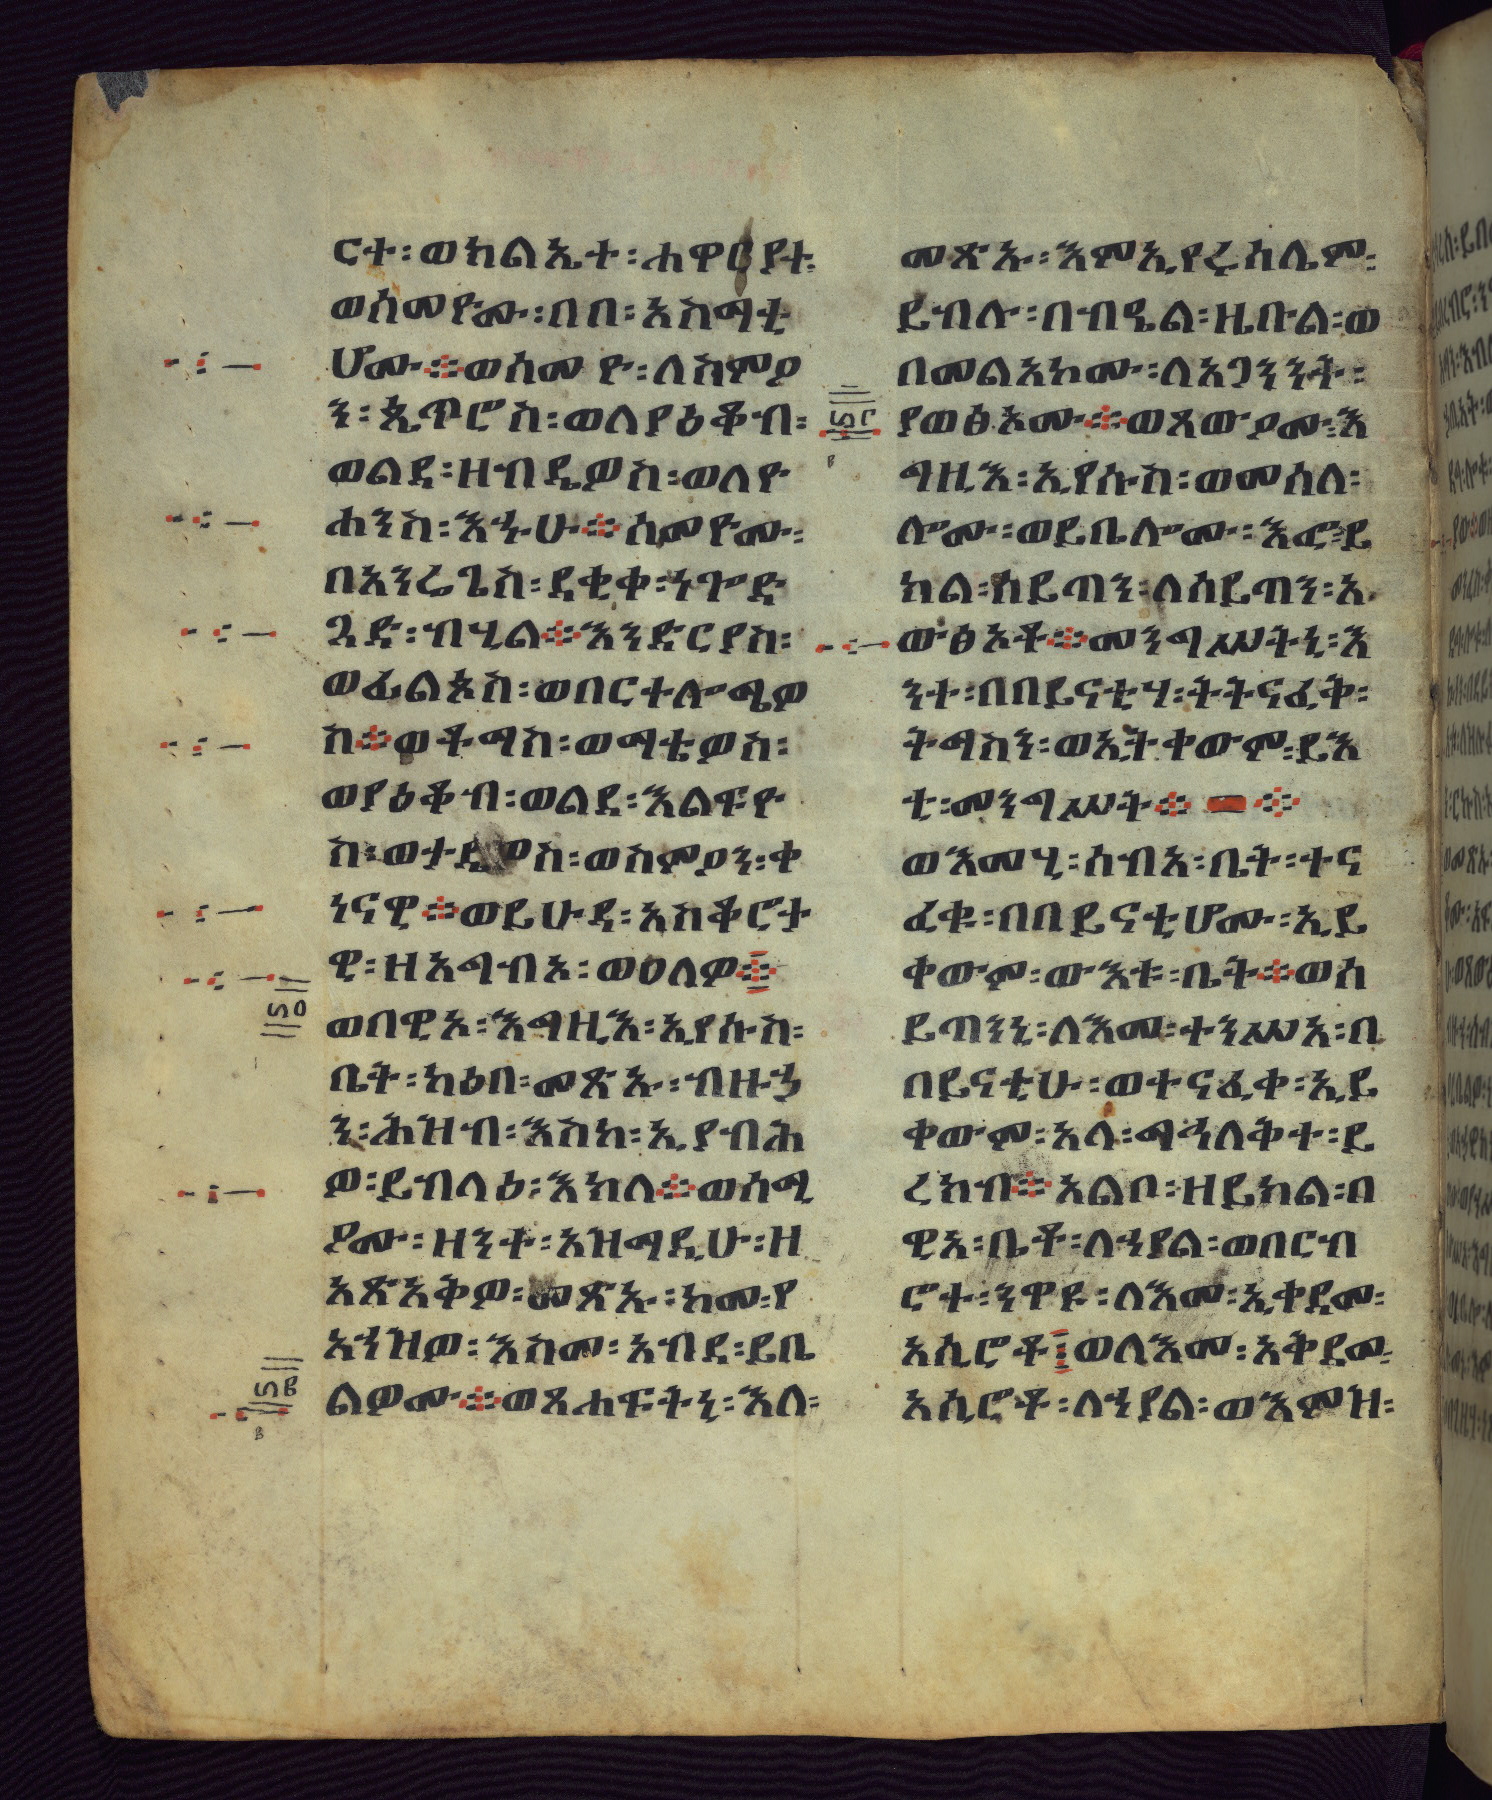 ርተ፡ወክልኤተ፡ሐዋርያተ፡
ወሰመዮሙ፡በበ፡አስማቲ
ሆሙ።ወሰመዮ፡ለስምዖ
ን፡ጴጥሮስ፡ወለያዕቆብ፡
ወልደ፡ዘብዴዎስ፡ወለዮ
ሐንስ፡እኁሁ።ሰመዮሙ፡
በአንሬጌስ፡ደቂቀ፡ነጐድ
ጓድ፡ብሂል።እንድርያስ፡
ወፊልጶስ፡ወበርተሎሜዎ
ስ።ወቶማስ፡ወማቴዎስ፡
ወያዕቆብ፡ወልደ፡እልፍዮ
ስ፡ወታዴዎስ፡ወስምዖን፡ቀ
ነናዊ።ወይሁዳ፡አስቆሮታ
ዊ፡ዘአግብኦ፡ወዐለዎ።
ወበዊኦ፡እግዚእ፡ኢየሱስ፡
ቤተ፡ካዕበ፡መጽኡ፡ብዙኃ
ን፡ሕዝብ፡እስከ፡ኢያብሕ
ዎ፡ይብላዕ፡እክለ።ወሰሚ
ዖሙ፡ዘንተ፡አዝማዲሁ፡ዘ
አጽአቅዎ፡መጽኡ፡ከመ፡የ
አኀዝዎ፡እስመ፡አብደ፡ይቤ
ልዎሙ።ወጸሐፍትኒ፡እለ፡
መጽኡ፡እምኢየሩሳሌም፡
ይብሉ፡በብዔል፡ዜቡል፡ወ
በመልአኮሙ፡ለአጋንንት፡
ያወፅኦሙ።ወጸውዖሙ፡እ
ግዚእ፡ኢየሱስ፡ወመሰለ፡
ሎሙ፡ወይቤሎሙ፡እፎ፡ይ
ክል፡ሰይጣን፡ለሰይጣን፡አ
ውፅኦቶ።መንግሥትኒ፡እ
ንተ፡በበይናቲሃ፡ትትናፈቅ፡
ትማስን፡ወኢትቀውም፡ይእ
ቲ፡መንግሥት።
ወእመሂ፡ሰብአ፡ቤት፡ተና
ፈቁ፡በበይናቲሆሙ፡ኢይ
ቀውም፡ውእቱ፡ቤት።ወሰ
ይጣንኒ፡ለእመ፡ተንሥአ፡በ
በይናቲሁ፡ወተናፈቀ፡ኢይ
ቀውም፡አላ፡ማኅለቅተ፡ይ
ረክብ።አልቦ፡ዘይክል፡በ
ዊአ፡ቤቶ፡ለኃያል፡ወበርብ
ሮተ፡ንዋዩ፡ለእመ፡ኢቀደመ፡
አሲሮቶ፤ወለእመ፡አቅደመ፡
አሲሮቶ፡ለኃያል፡ወእምዝ፡